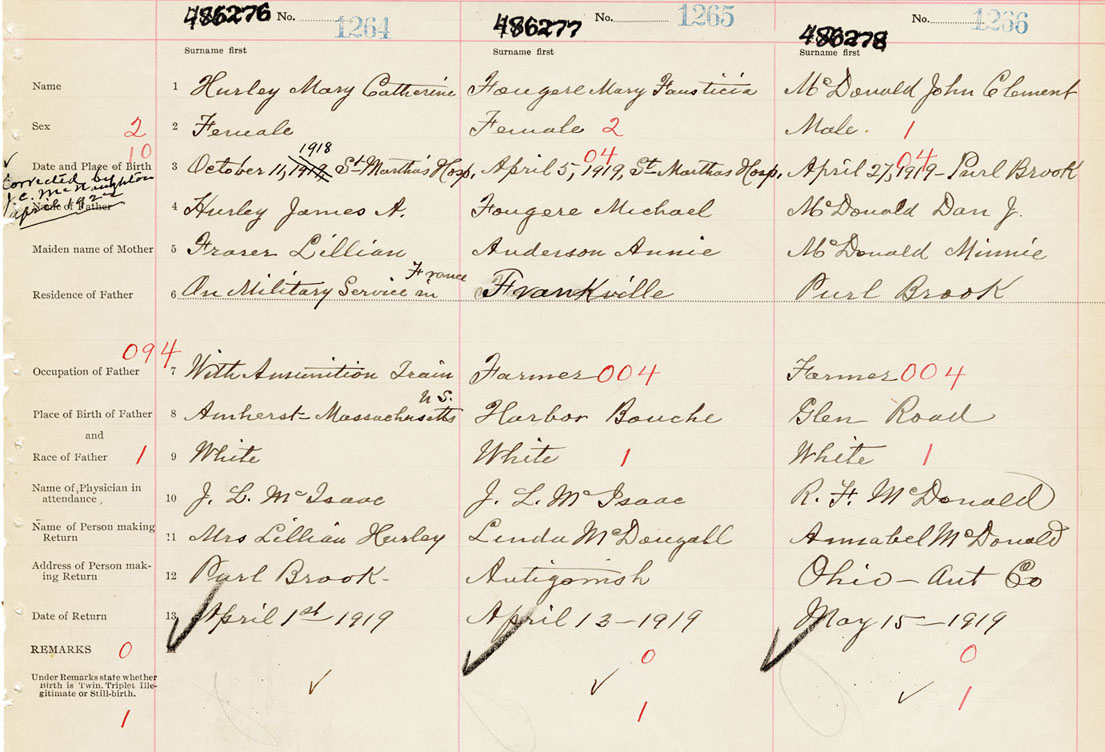 486276 No. 1264 486277 No. 1265 486278 No. 1266
Surname first Surname first Surname first
Name 1 Hurley Mary Catherine Fougere Mary Fausticia McDonald John Clement
Sex 2 2 Female Female 2 Male. 1
10 1918 04 04
Date and Place of Birth 3 October 11, 1919, St Martha's Hosp, April 5, 1919, St Marthas Hosp, April 27, 1919 - Purl Brook
Corrected by
J. C. McNaughton
April 1922
Name of Father 4 Hurley James A. Fougere Michael McDonald Dan J.
Maiden name of Mother 5 Fraser Lillian Anderson Annie McDonald Minnie
Residence of Father 6 On Military Service in France Frankville Purl Brook
094
Occupation of Father 7 With Amunition Train Farmer 004 Farmer 004
Place of Birth of Father 8 Amherst - Massachusetts U.S. Harbor Bouche Glen Road
and
Race of Father 1 9 White White 1 White 1
Name of Physician in
attendance 10 J. L. McIsaac J. L. McIsaac R. F. McDonald
Name of Person making
Return 11 Mrs Lillian Hurley Linda McDougall Annabel McDonald
Address of Person mak-
ing Return 12 Purl Brook - Antigonish Ohio - Ant Co
Date of Return 13 April 1st - 1919 April 13 - 1919 May 15 - 1919
REMARKS 0 0 0
Under Remarks state whether
Birth is Twin, Triplet Ille-
gitimate or Still-birth.
1 1 1